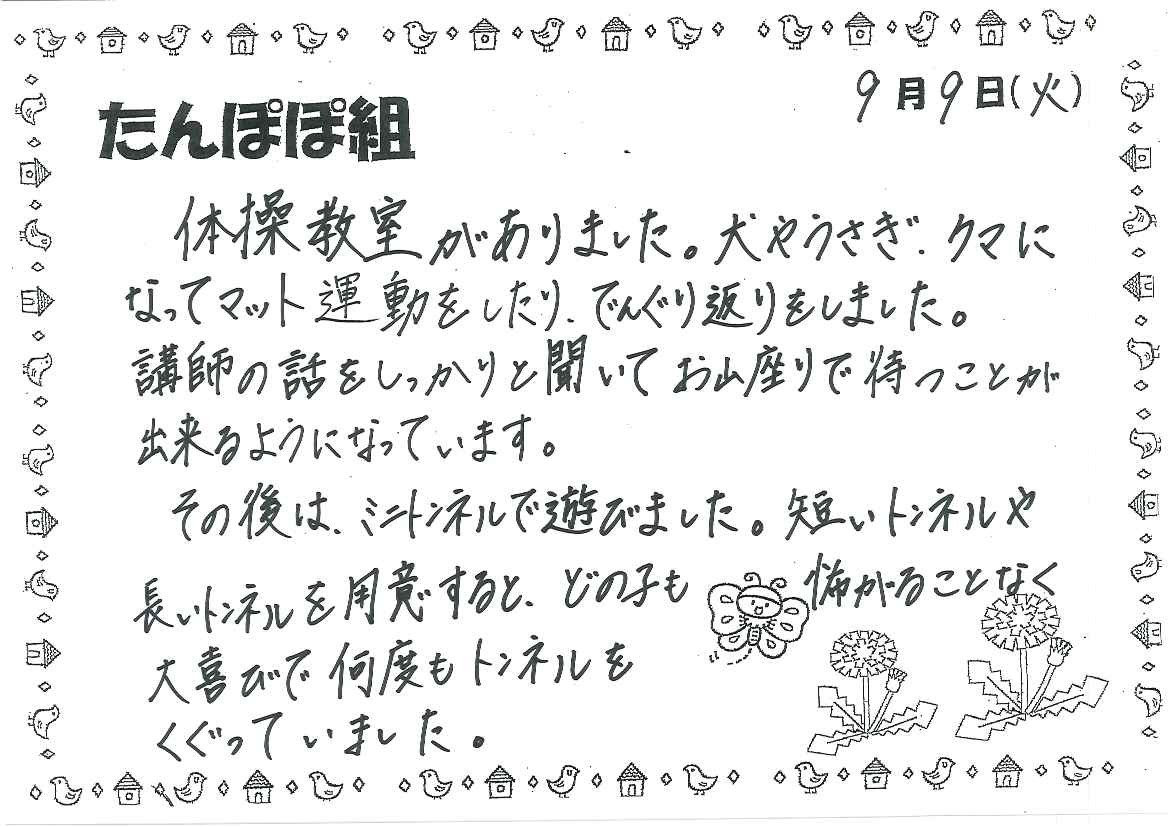 9月9日(火)
たんぽぽ組
体操教室がありました。犬やうさぎ、クマに
なってマット運動をしたり、でんぐり返りをしました。
講師の話をしっかりと聞いてお山座りで待つことが
出来るようになっています。
その後は、ミニトンネルで遊びました。短いトンネルや
長いトンネルを用意すると、どの子も怖がることなく
大喜びで何度もトンネルを
くぐっていました。